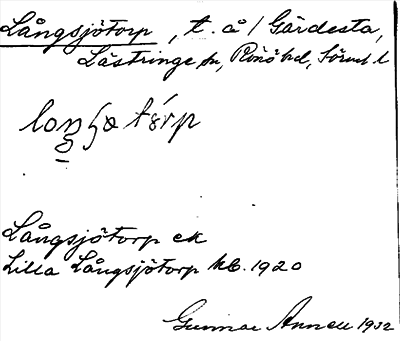 Långsjötorp, t. å / Gärdesta,
Lästringe sn, Rönö hd, Sörml l
loŋʃø tórp
Långsjötorp ek
Lilla Långsjötorp kb. 1920
Gunnar Annell 1932